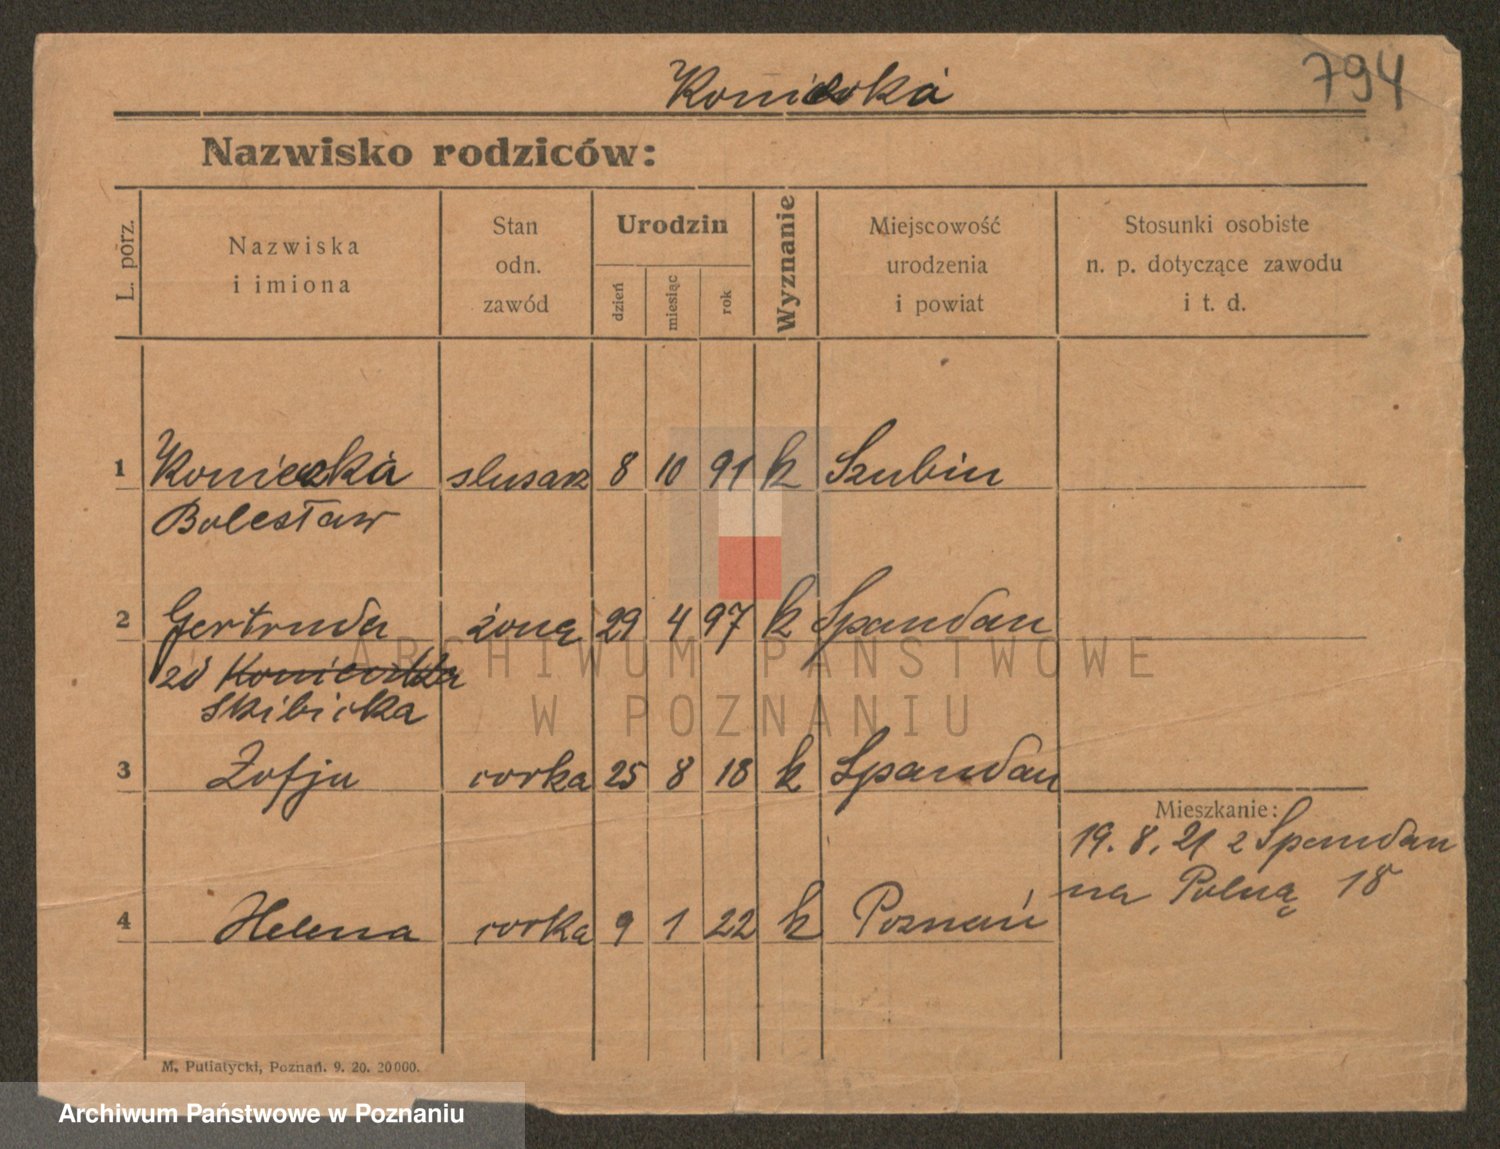 Konieczka
794
Nazwisko rodziców:
L. porz.
Nazwiska
i imiona
Stan
odn.
zawód
Urodzin
dzień
miesiąc
rok
Wyznanie
Miejscowość
urodzenia
i powiat
Stosunki osobiste
n. p. dotyczące zawodu
i t. d.
1 Konieczka slusarz 8 10 91 k Szubin
Bolesław
2 Gertruda żona 29 4 97 k Spandau
zd Konieczka
Skibicka
3 Zofja corka 25 8 18 k Spandau
Mieszkanie:
19. 8. 21 z Spandau
na Polną 18
4 Helena corka 9 1 22 k Poznań
M. Putiatycki, Poznań. 9. 20. 20000.
ARCHIWUM PAŃSTWOWE
W POZNANIU
Archiwum Państwowe w Poznaniu